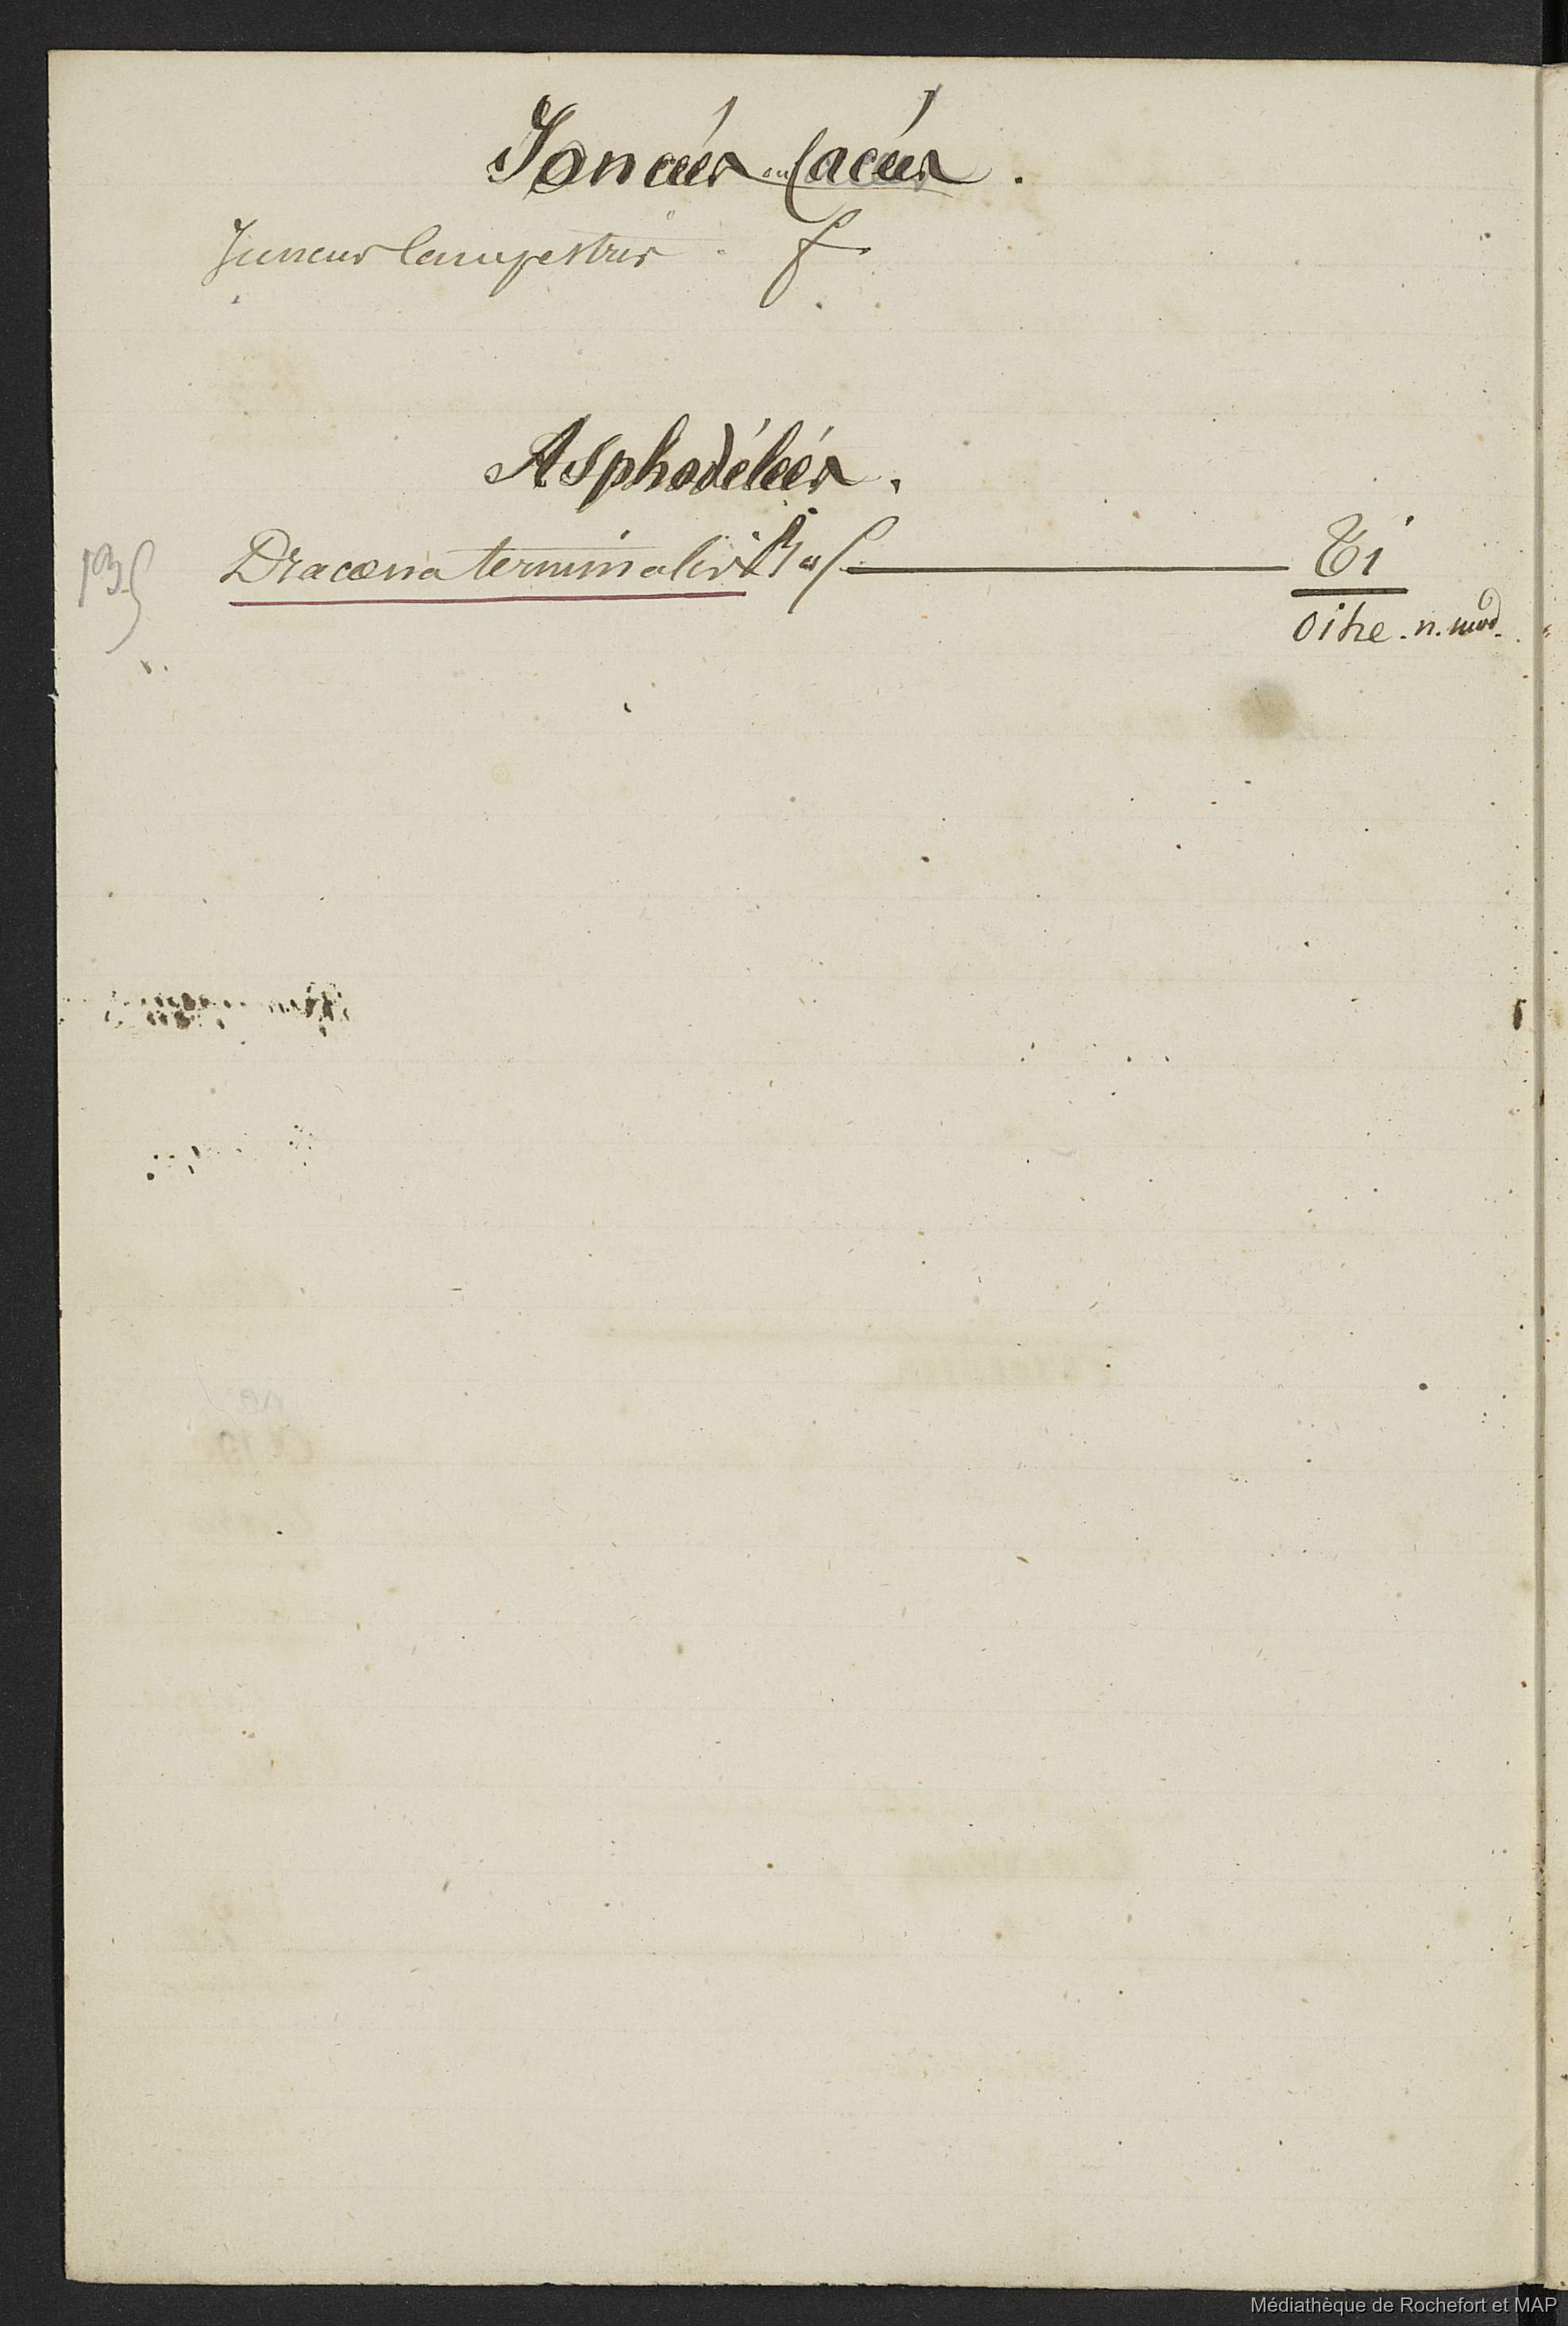 Joncées ou (acées.
Juncus Campestris. f
Asphodélées.
135 Dracœna terminalis Ti
oihe. n. mod.
Médiathèque de Rochefort et MAP